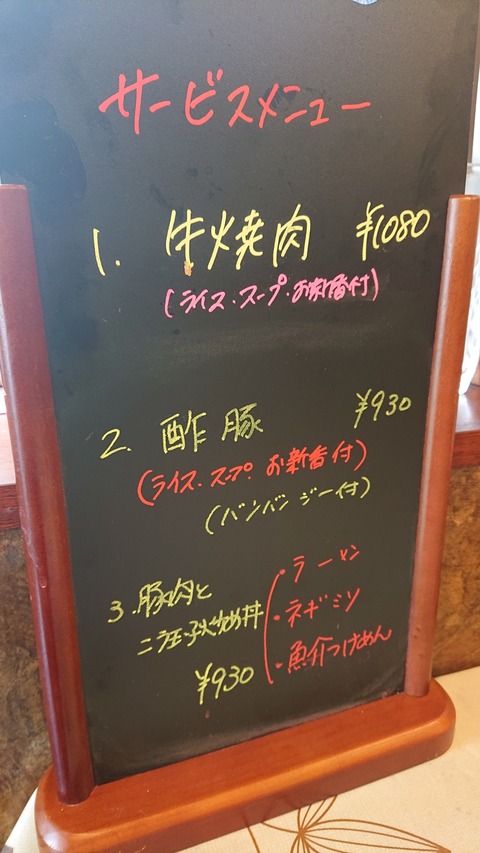 サービスメニュー
1. 牛焼肉 ¥1080
(ライス・スープ・お新香付)
2. 酢豚 ¥930
(ライス・スープ・お新香付)
(バンバンジー付)
3. 豚肉と
ニラ玉子炒め丼
¥930
・ラーメン
・ネギミソ
・魚介つけめん